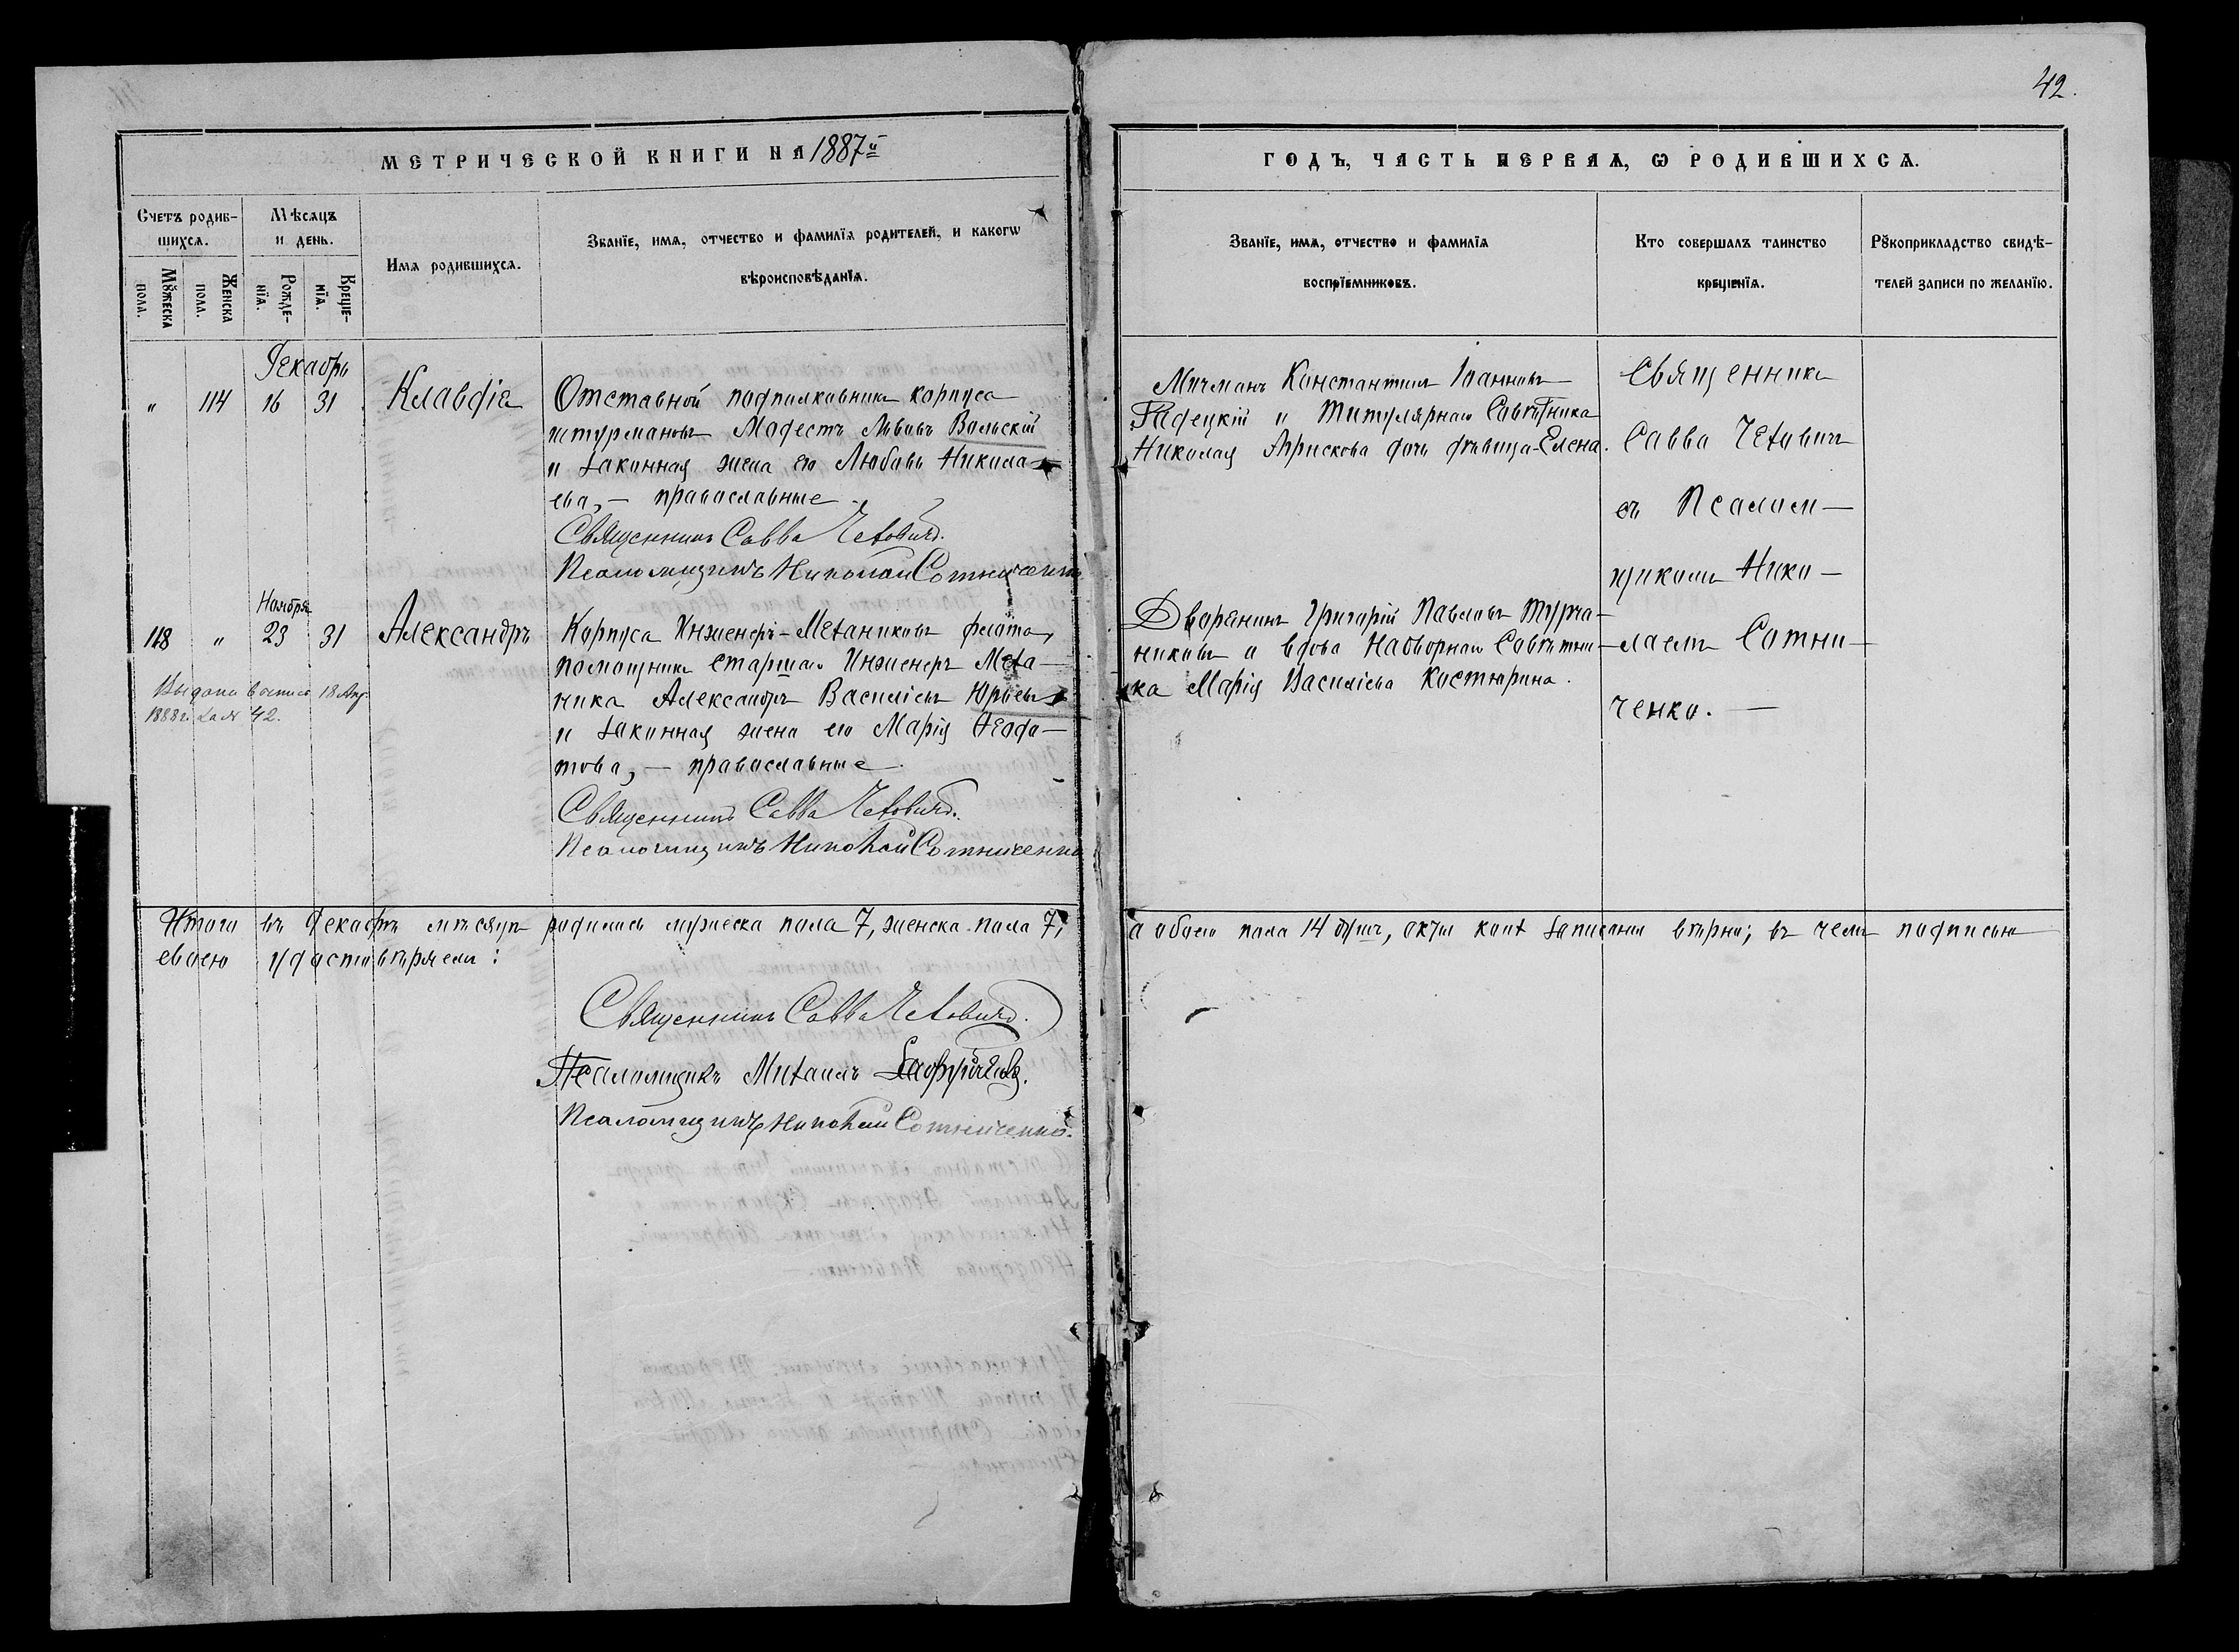 42.
МЕТРИЧЕСКОЙ КНИГИ НА 1887й
ГОДЪ, ЧАСТЬ ПЕРВАЯ, Ѡ РОДИВШИХСЯ.
Счетъ родив-
шихся.
Мꙋжеска
пола.
Женска
пола.
Мѣсяцъ
и день.
Рожде-
нїя.
Креще-
нїя.
Имя родившихся.
Званїе, имя, отчество и фамилїя родителей, и какогѡ
вѣроисповѣданїя.
Званїе, имя, отчество и фамилїя
воспрїемниковъ.
Кто совершалъ таинство
крещенїя.
Рꙋкоприкладство свидѣ-
телей записи по желанїю.
Декабрь
„ 114 16 31 Клавдія
Отставной подполковникъ корпуса
штурмановъ Модестъ Львовъ Вольскій
и законная жена его Любовь Никола-
ева, — православные.
Священникъ Савва Чеховичъ.
Псаломщикъ Николай Сотниченко
Мичманъ Константинъ Іоанновъ
Радецкій и Титулярнаго Совѣтника
Николая дочь дѣвица Елена.
Священникъ
Савва Чеховичъ
съ Псалом-
щикомъ Нико-
лаемъ Сотни-
ченко. —
Ноября
118 „ 23 31 Александръ
Выдана 18 Апр.
1888 г. за № 42.
Корпуса Инженеръ-Механиковъ флота,
помощникъ старшаго Инженеръ Меха-
ника Александръ Василіевъ Юрьевъ
и законная жена его Марія Ѳеодо-
това, — православные.
Священникъ Савва Чеховичъ.
Псаломщикъ Николай Сотниченко
Дворянинъ Григорій Павловъ Турча-
ниновъ и вдова Надворнаго Совѣтни-
ка Марія Василіева Костырина.
Итого въ Декабрѣ мѣсяцѣ родилось мужеска пола 7, женска пола 7,
а обоего пола 14 душъ, записаны вѣрно; въ чемъ подписью
своею удостовѣряемъ:
Священникъ Савва Чеховичъ.
Псаломщикъ Михаилъ
Псаломщикъ Николай Сотниченко.